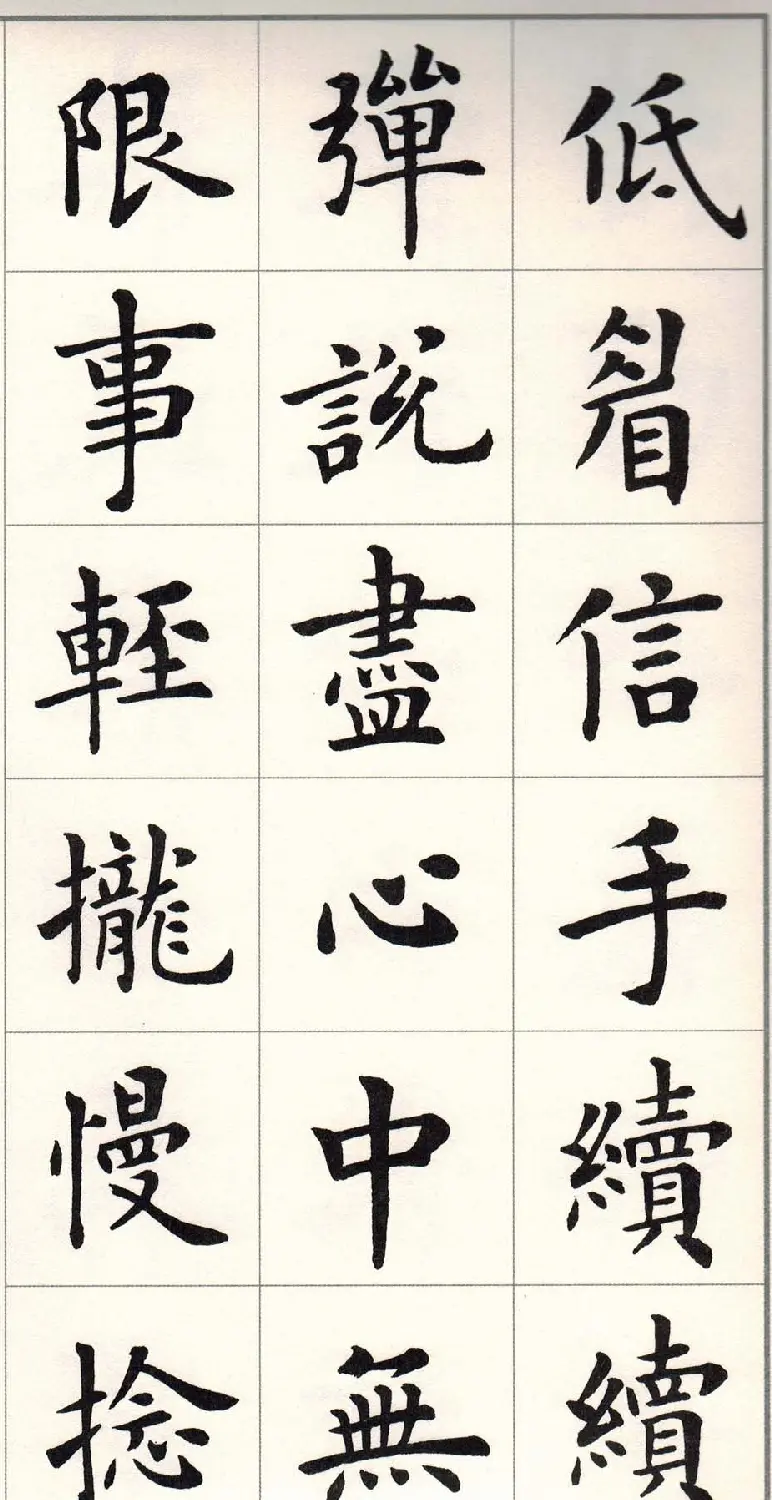 低眉信手續續
彈說盡心中無
限事輕攏慢捻